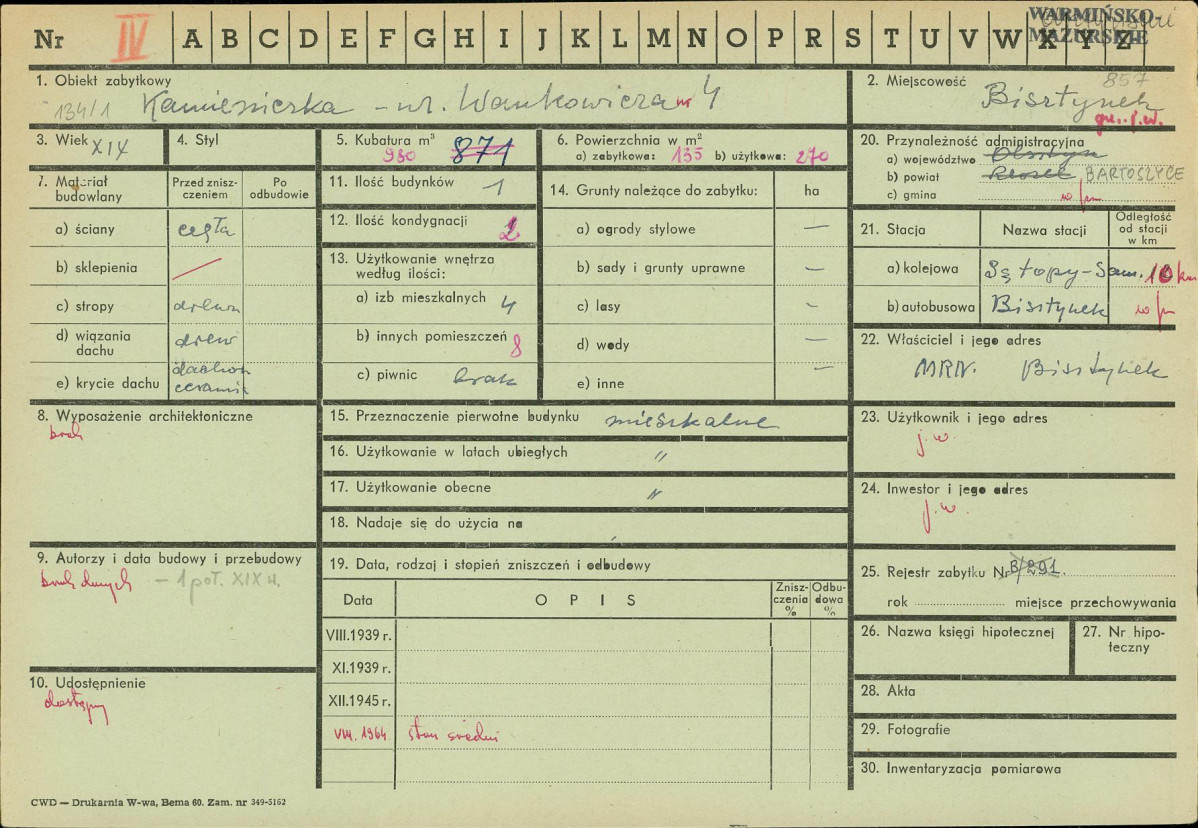 Nr IV A B C D E F G H I J K L M N O P R S T U V W X Y Z
WARMIŃSKO
MAZURSKIE
1. Obiekt zabytkowy
134/1 Kamieniczka – ul. Wańkowicza nr 4
2. Miejscowość 857
Bisztynek
gm. j.w.
3. Wiek XIX
4. Styl
5. Kubatura m³
930 871
6. Powierzchnia w m²
a) zabytkowa: 135 b) użytkowa: 270
20. Przynależność administracyjną
a) województwo Olsztyn
b) powiat Reszel BARTOSZYCE
c) gmina w/m
7. Materiał budowlany
Przed zniszczeniem
Po odbudowie
a) ściany cegła
b) sklepienia /
c) stropy drewn
d) wiązania dachu drew
e) krycie dachu dachów ceramic
11. Ilość budynków 1
12. Ilość kondygnacji 2
13. Użytkowanie wnętrza
według ilości:
a) izb mieszkalnych 4
b) innych pomieszczeń 8
c) piwnic brak
14. Grunty należące do zabytku: ha
a) ogrody stylowe —
b) sady i grunty uprawne —
c) lasy –
d) wody —
e) inne —
21. Stacja
Nazwa stacji
Odległość od stacji w km
a) kolejowa Sątopy-Sam. 10 km
b) autobusowa Bisztynek w/m
22. Właściciel i jego adres
MRN. Bisztynek
8. Wyposażenie architektoniczne
brak
15. Przeznaczenie pierwotne budynku mieszkalne
16. Użytkowanie w latach ubiegłych "
17. Użytkowanie obecne "
18. Nadaje się do użycia na
23. Użytkownik i jego adres
j.w.
24. Inwestor i jego adres
j.w.
9. Autorzy i data budowy i przebudowy
brak danych – 1 poł. XIX w.
19. Data, rodzaj i stopień zniszczeń i odbudowy
Data
O P I S
Zniszczenia %
Odbudowa %
VIII.1939 r.
XI.1939 r.
XII.1945 r.
VIII. 1964 stan średni
25. Rejestr zabytku Nr B/291
rok miejsce przechowywania
26. Nazwa księgi hipotecznej
27. Nr hipoteczny
10. Udostępnienie
dostępny
28. Akta
29. Fotografie
30. Inwentaryzacja pomiarowa
CWD — Drukarnia W-wa, Bema 60. Zam. nr 349-5162